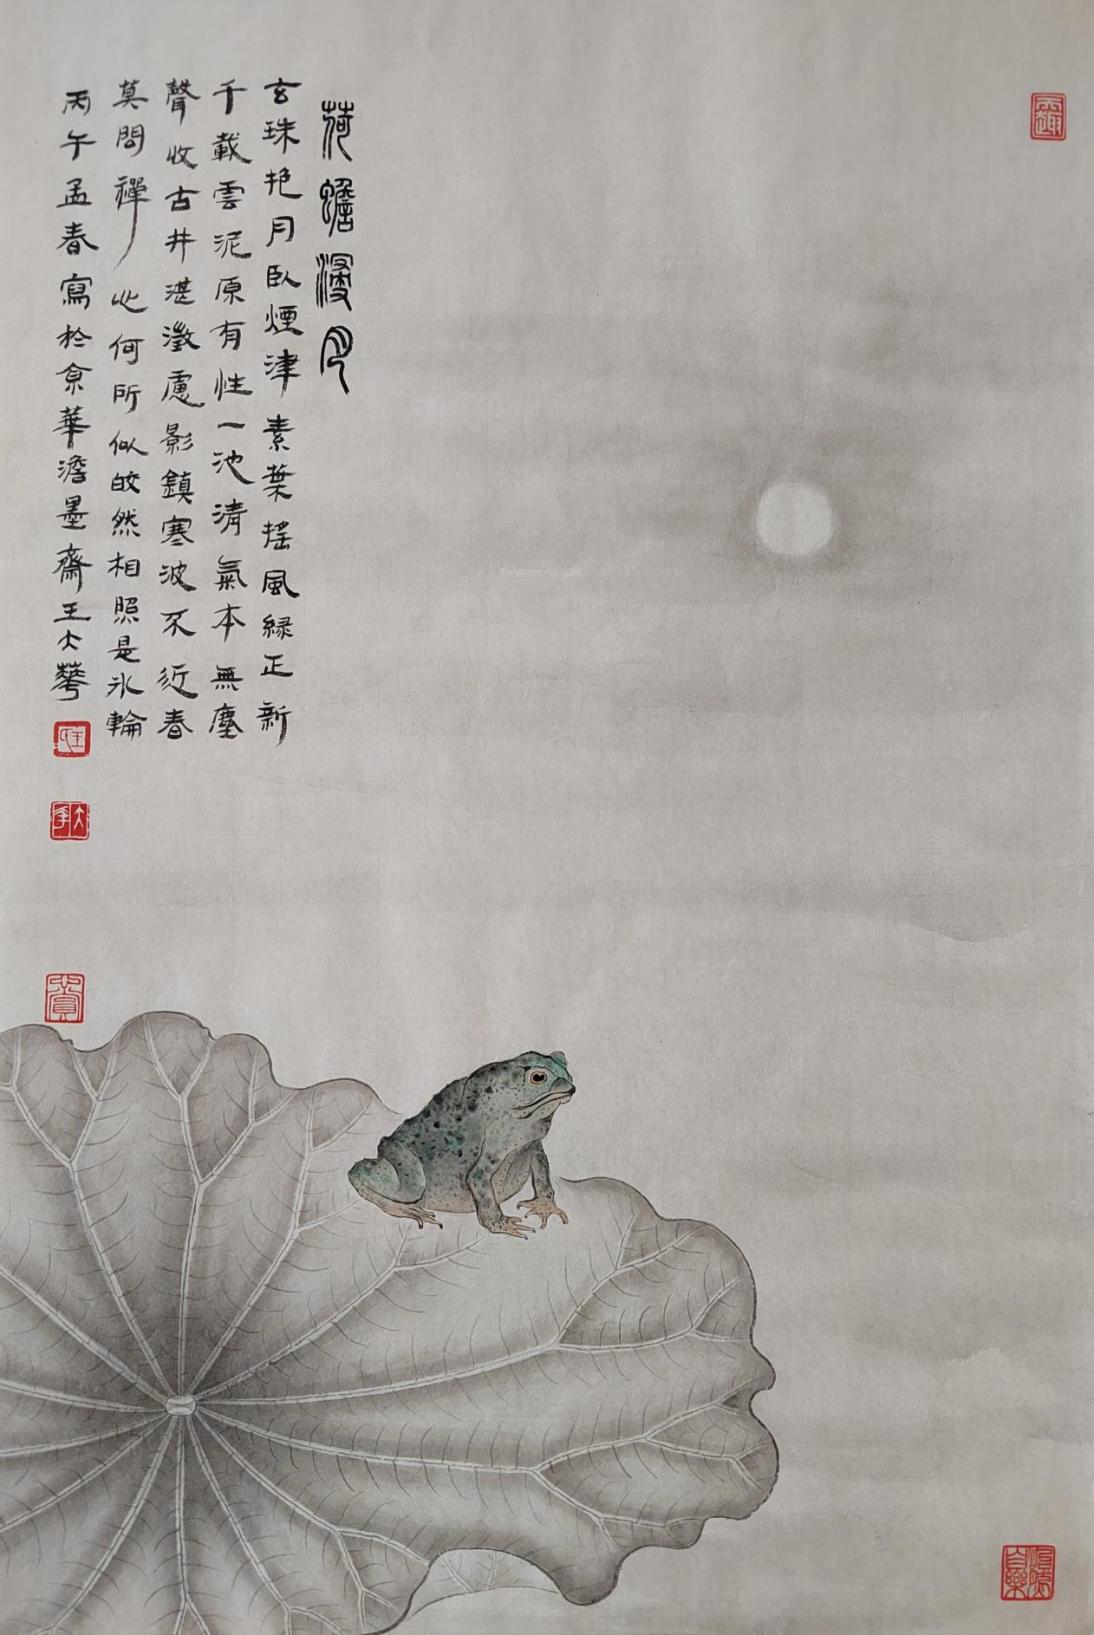 荷蟾漫月
玄珠抱月臥煙津素葉搖風緑正新
千載雲泥原有性一池清氣本無塵
聲收古井湛澂慮影鎮寒波不近春
莫問禪心何所似皎然相照是氷輪
丙午孟春寫於京華澹墨齋王大華